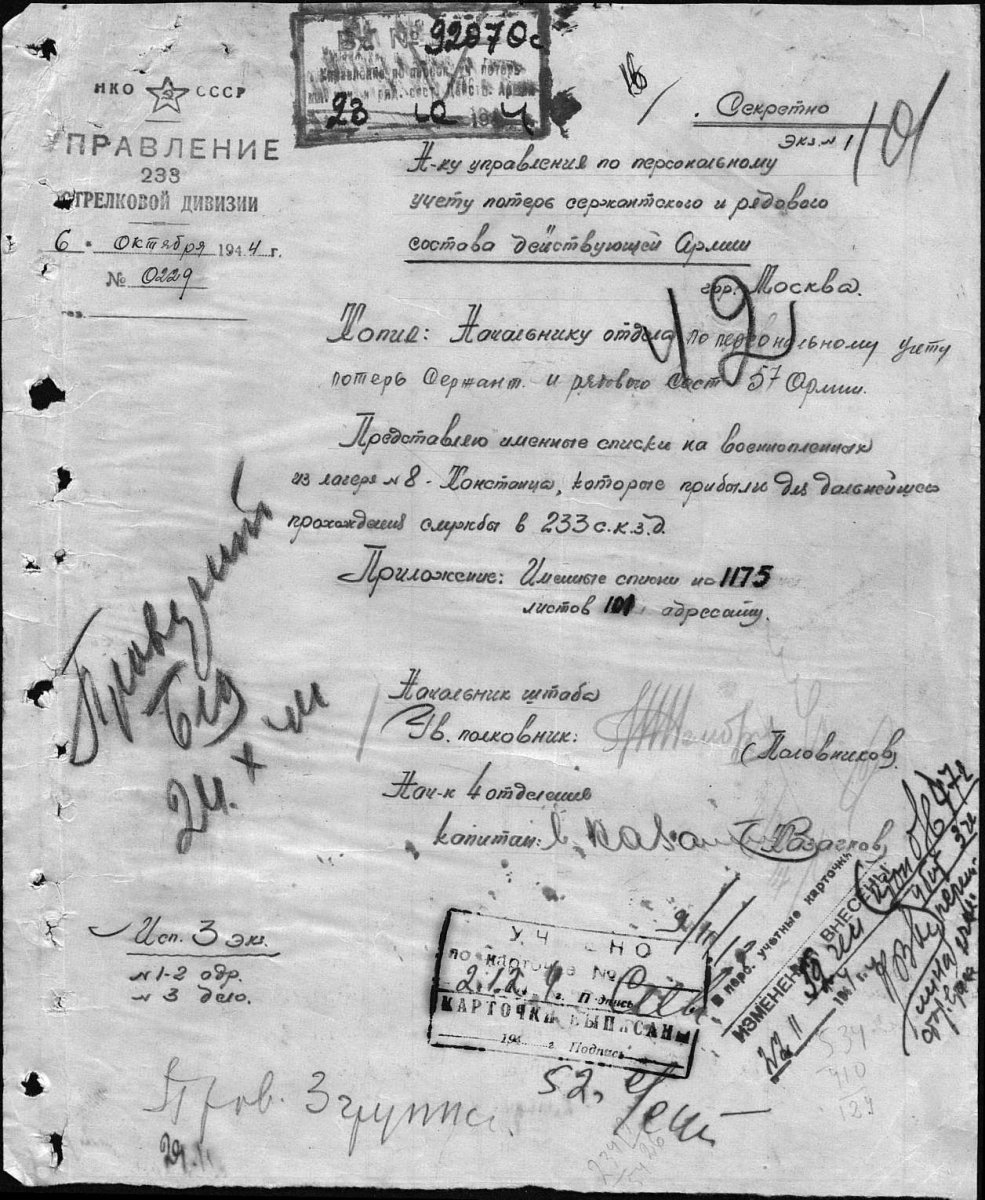 Вх №92070с
23 10 1944
НКО СССР
УПРАВЛЕНИЕ
233
СТРЕЛКОВОЙ ДИВИЗИИ
6 " октября 1944 г.
№ 0229
Секретно
экз. №1
101
Н-ку управления по персональному
учету потерь сержантского и рядового
состава действующей Армии
гор. Москва.
12
Копия: Начальнику отдела по персональному учету
потерь Сержант. и рядового сост 57 Армии.
Представляю именные списки на военнопленных
из лагеря №8 - Констанца, которые прибыли для дальнейшего
прохождения службы в 233 с.к.з.д.
Приложение: Именные списки на 1175
листов 101, адресату.
Начальник штаба
Гв. полковник: (Половников)
Нач-к 4 отделения
капитан: (Казачков)
Исп. 3 экз.
№1-2 адр.
№3 дело.
УЧТЕНО
по карточке №
г. Подпись
КАРТОЧКИ ВЫПИСАНЫ
194 г. Подпись
В перс. учетные карточки
ИЗМЕНЕНИЯ ВНЕСЕНЫ
Пров. 3 группа
52.
534
410
124